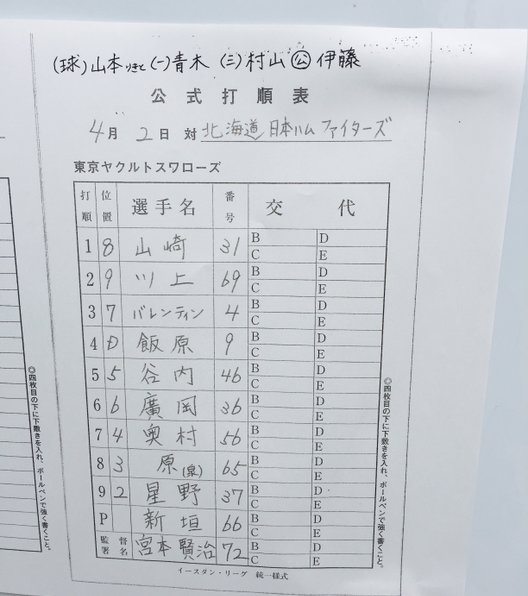 (球)山本りきと (一)青木 (三)村山 公 伊藤
公式打順表
4月 2日 対 北海道日本ハムファイターズ
東京ヤクルトスワローズ
打順 位置 選手名 番号 交代
1 8 山崎 31 B D C E
2 9 川上 69 B D C E
3 7 バレンティン 4 B D C E
4 D 飯原 9 B D C E
5 5 谷内 46 B D C E
6 6 廣岡 36 B D C E
7 4 奥村 56 B D C E
8 3 原(泉) 65 B D C E
9 2 星野 37 B D C E
P 新垣 66 B D C E
監督署名 宮本賢治 72 B D C E
イースタン・リーグ 統一様式
◎四枚目の下に下敷きを入れ、ボールペンで強く書くこと。
◎四枚目の下に下敷きを入れ、ボールペンで強く書くこと。